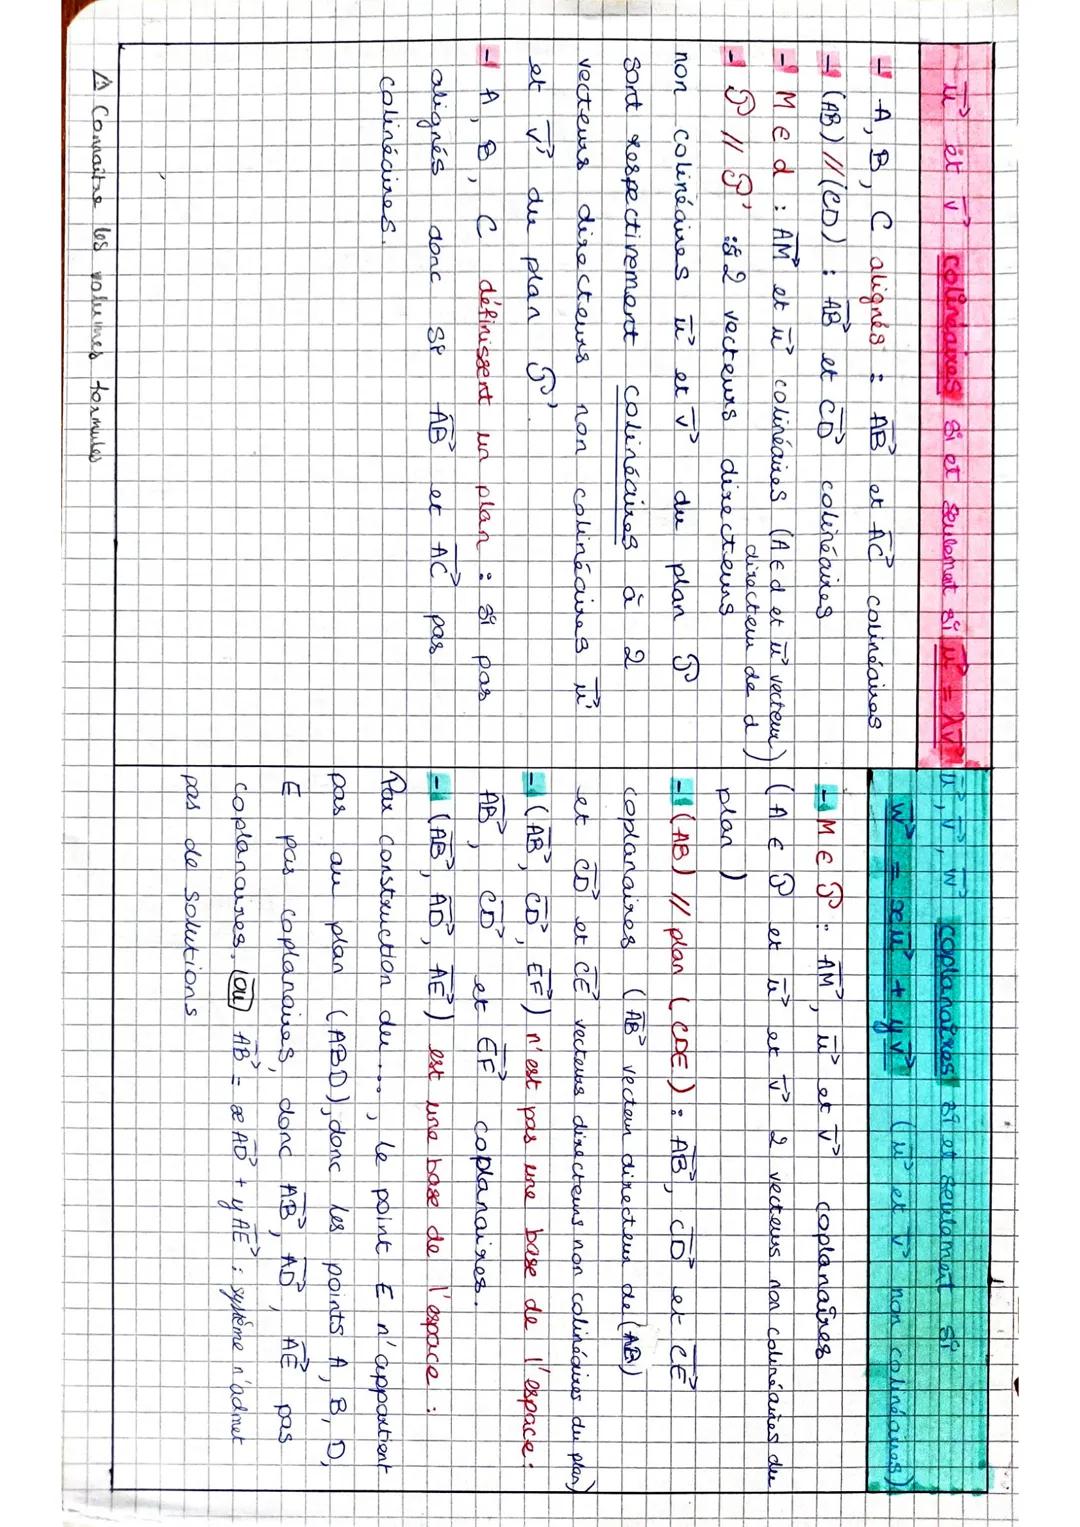 u⃗ et v⃗ colinéaires si et seulement si u⃗ = λv⃗
- A, B, C alignés : AB⃗ et AC⃗ colinéaires
- (AB) // (CD) : AB⃗ et CD⃗ colinéaires
- M ∈ d : AM⃗ et u⃗ colinéaires (A ∈ d et u⃗ vecteur
directeur de d)
- P // P' : si 2 vecteurs directeurs
non colinéaires u⃗ et v⃗ du plan P
sont respectivement colinéaires à 2
vecteurs directeurs non colinéaires u⃗'
et v⃗' du plan P'.
- A, B, C définissent un plan : si pas
alignés donc si AB⃗ et AC⃗ pas
colinéaires.
u⃗, v⃗, w⃗ coplanaires si et seulement si
w⃗ = xu⃗ + yv⃗ (u⃗ et v⃗ non colinéaires)
- M ∈ P : AM⃗, u⃗ et v⃗ coplanaires
(A ∈ P et u⃗ et v⃗ 2 vecteurs non colinéaires du
plan)
- (AB) // plan (CDE) : AB⃗, CD⃗ et CE⃗
coplanaires (AB⃗ vecteur directeur de (AB)
et CD⃗ et CE⃗ vecteurs directeurs non colinéaires du plan)
- (AB⃗, CD⃗, EF⃗) n'est pas une base de l'espace :
AB⃗, CD⃗ et EF⃗ coplanaires.
- (AB⃗, AD⃗, AE⃗) est une base de l'espace :
Par construction du ..., le point E n'appartient
pas au plan (ABD), donc les points A, B, D,
E pas coplanaires, donc AB⃗, AD⃗, AE⃗ pas
coplanaires. ou AB⃗ = xAD⃗ + yAE⃗ : système n'admet
pas de solutions
⚠ Connaître les volumes formules